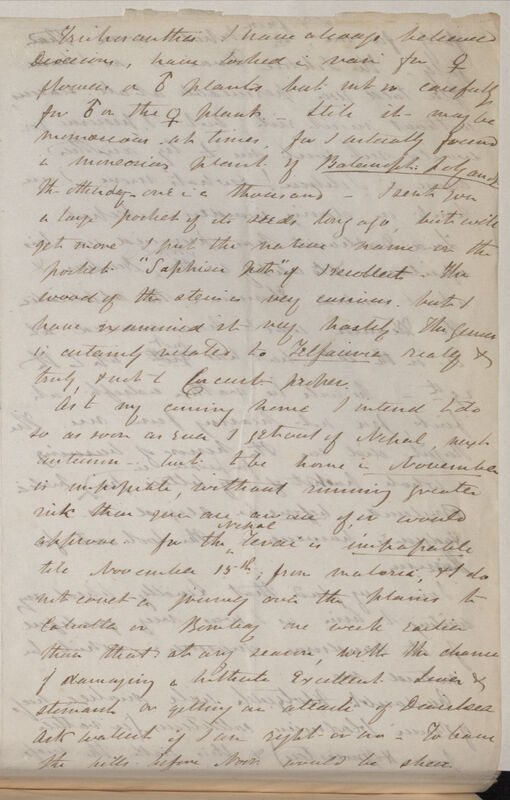 Trichosanthes I have always believed
Dioecious, have looked in vain for ♀
flowers on ♂ plants but not so carefully
for ♂ on the ♀ plant — still it may be
monoecious at times, for I actually found
a monoecious plant of
the other day one in a thousand — I sent you
a large pocket of its seeds long ago, but will
get more I put the native name on the
pocket " " if I recollect The
wood of the stem is very curious but I
have examined it very hastily. The genus
is certainly related to Telfairia really &
truly, & not to Cucurb. proper.
As to my coming home I intend to do
so as soon as ever I get out of Nepal, next
autumn — but to be home in November
is impossible, without running greater
risk than you are aware of, or would
approve for the Nepal Terai is impassable
till November 15th; from malaria, & I do
not covet a journey over the plains to
Calcutta or Bombay one week earlier
than that at any season, with the chance
of damaging a hitherto Excellent Liver &
stomach or getting an attack of
ask if I am right or no — To leave
the hills before Novr. would be sheer